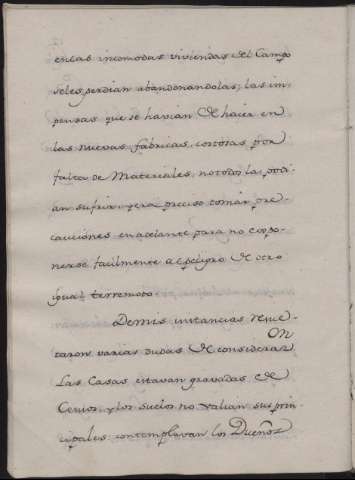 en las incomodas viviendas del Campo
seles perdian abandonandolas; las im
pensas que se havian de hacer en
las nuevas fabricas, costosas por
falta de Materiales, no todos la podi
an sufrir: y era preciso tomar pre
cauciones en adelante para no expo-
nerse facilmente a el peligro de otro
igual terremoto.
Demis instancias resul
taron varias dudas de considerar
On
Las Casas estavan gravadas de
Censos, y los suelos no valian sus prin-
cipales: contemplavan los Dueños